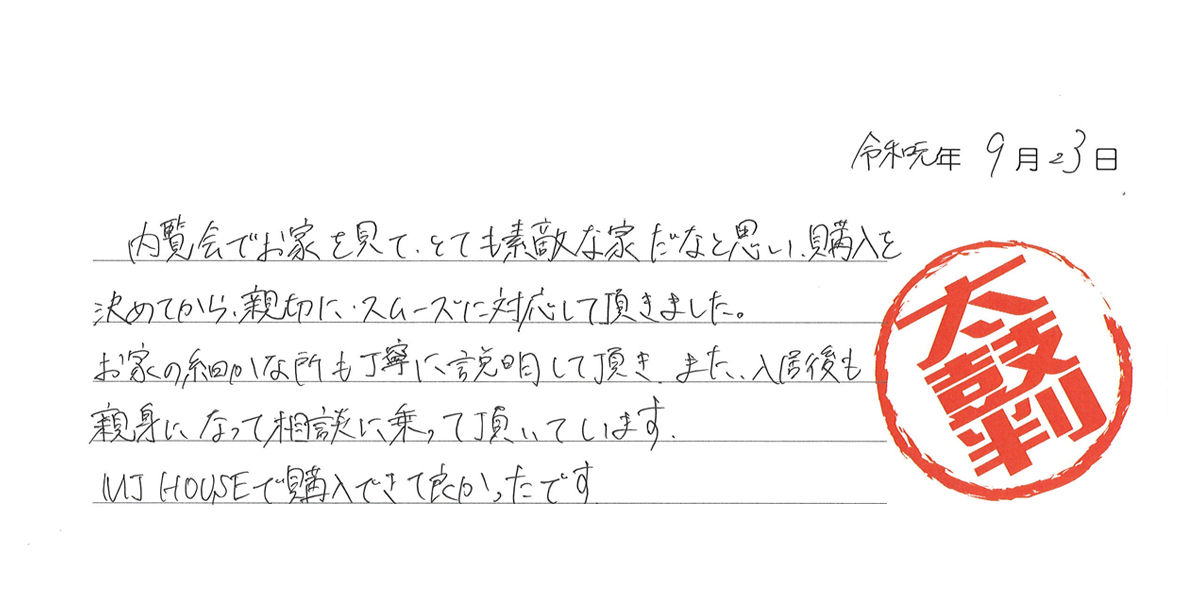 令和元年 9月23日
内覧会でお家を見て、とても素敵な家だなと思い、購入を
決めてから、親切に、スムーズに対応して頂きました。
お家の細かな所も丁寧に説明して頂き、また、入居後も
親身になって相談に乗って頂いています。
MJ HOUSEで購入できて良かったです
太鼓判